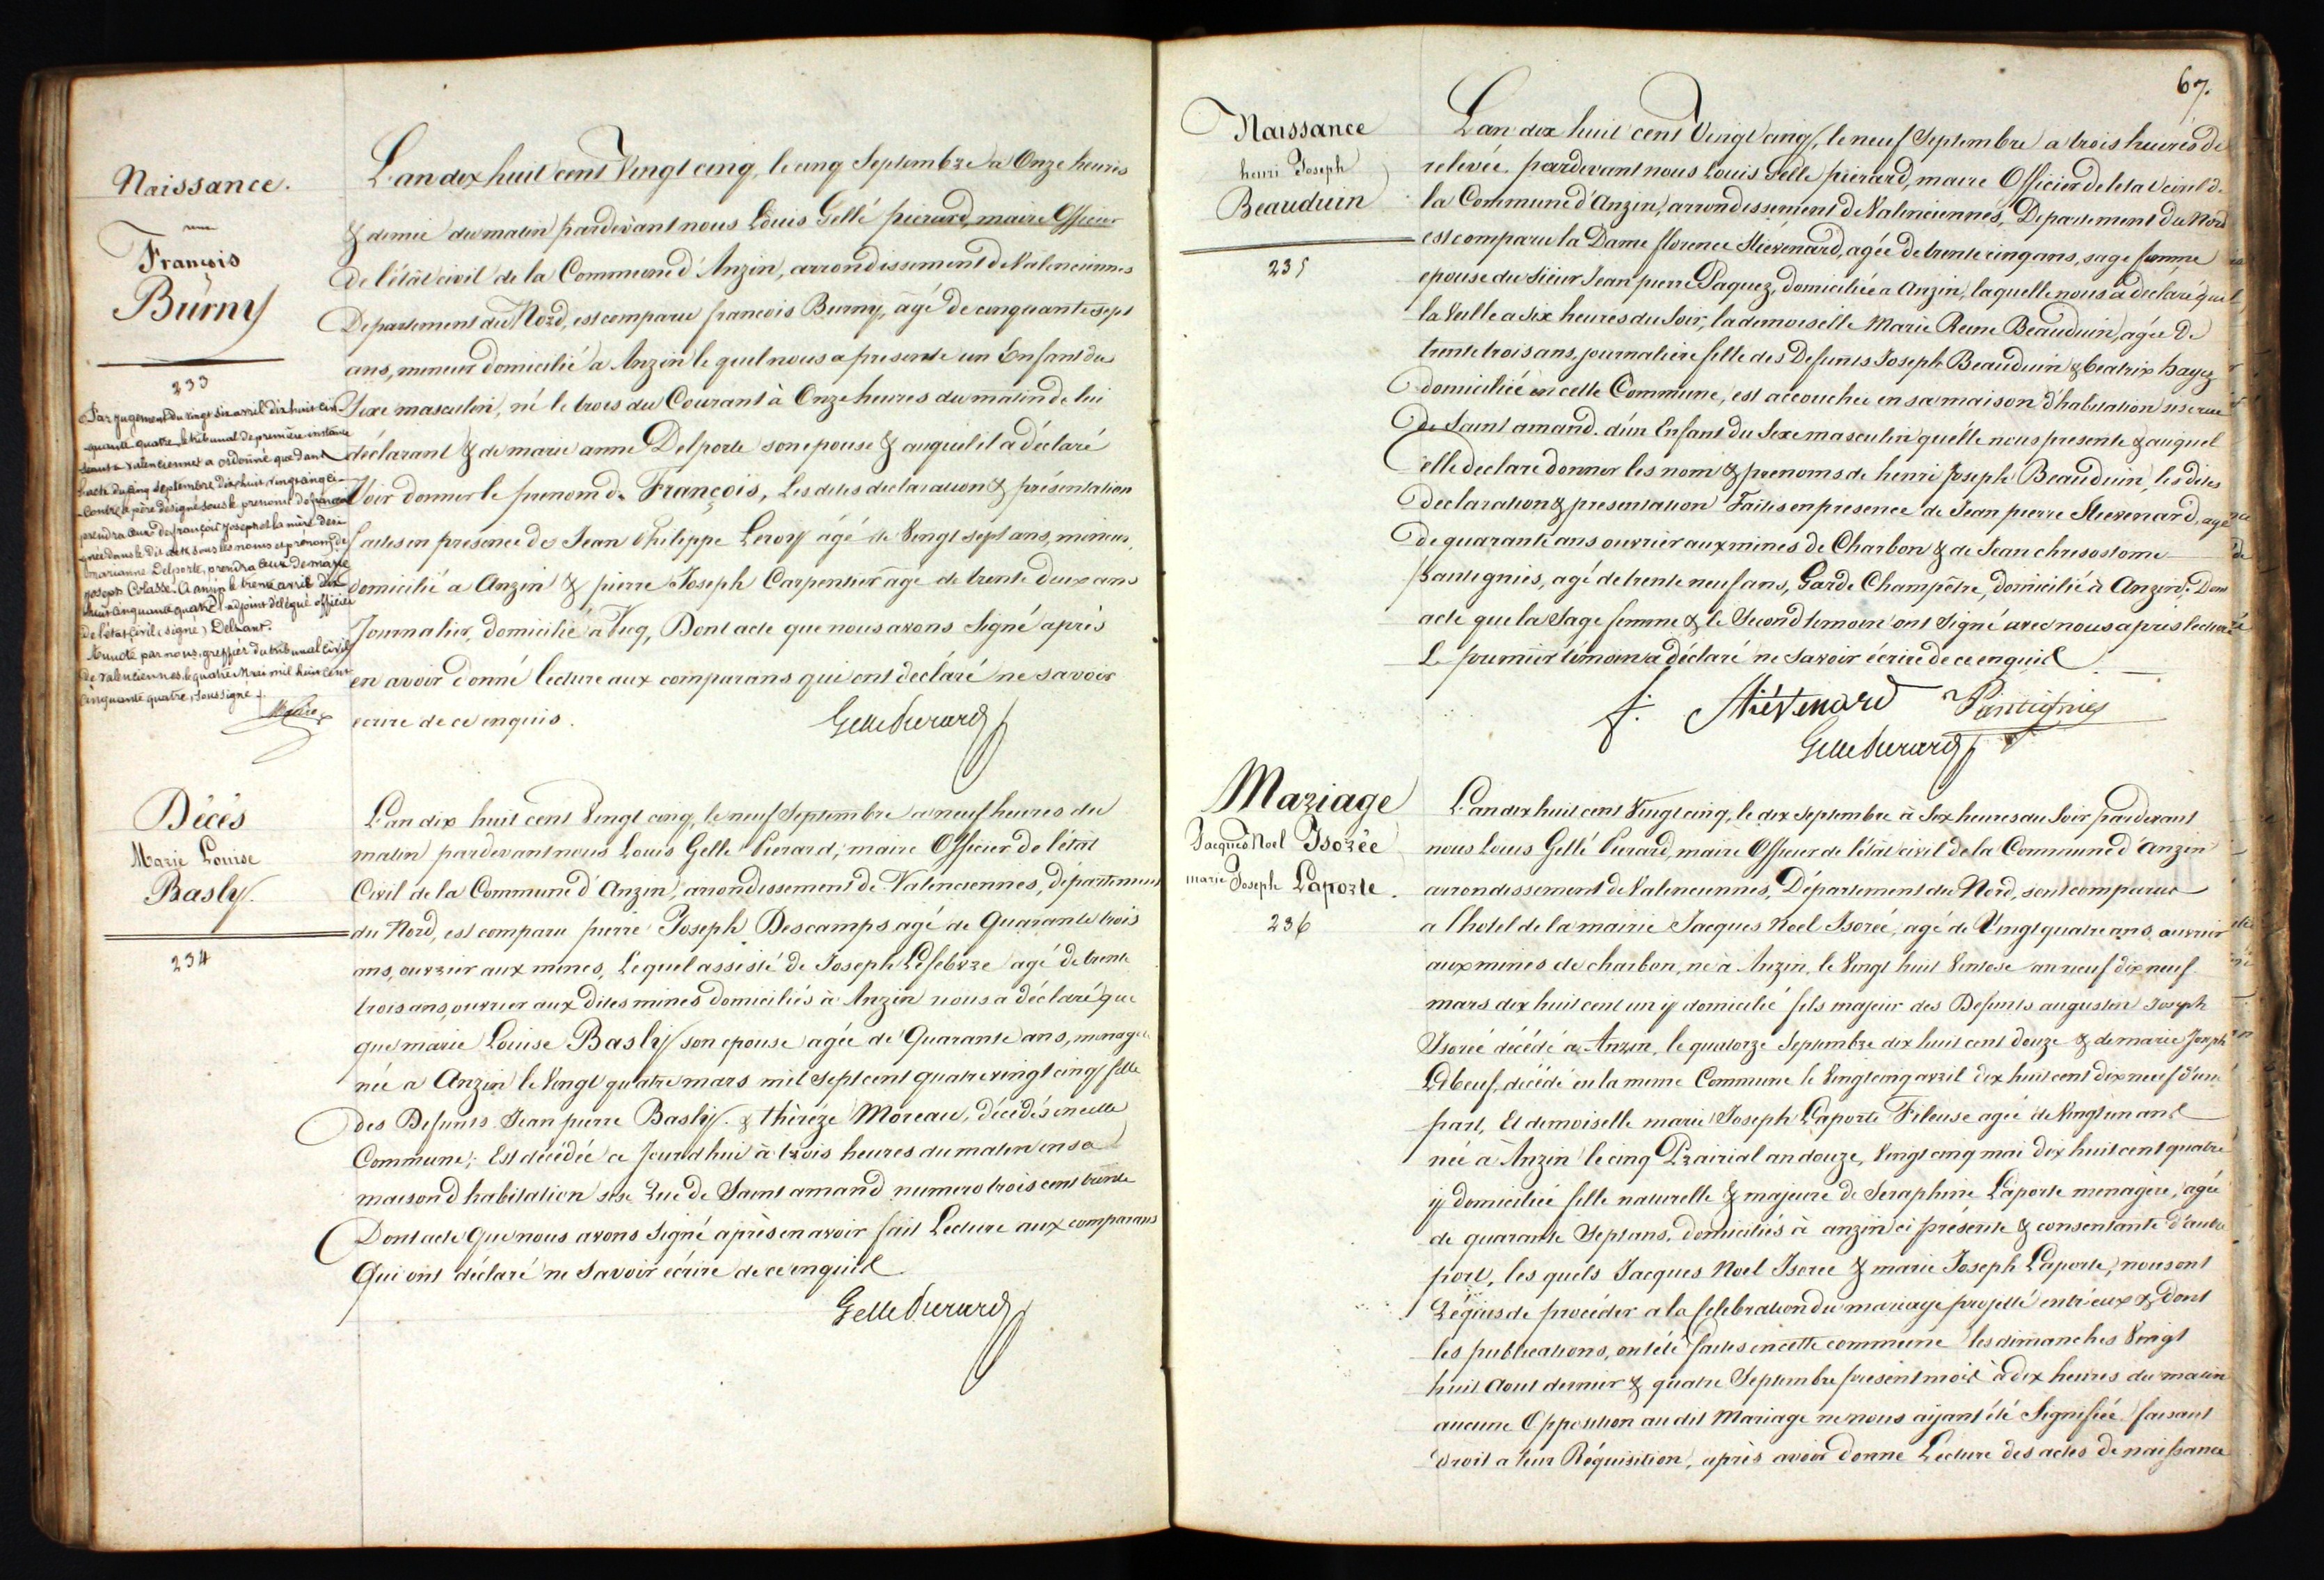 Naissance.
François
Burny
233
Par jugement du vingt six avril dix huit cent
quante quatre le tribunal de première instance
séant à Valenciennes a ordonné que dans
l'acte du cinq septembre dix huit vingt cinq ci
contre, le père désigné sous le prénom de françois
prendra ceux de françois joseph et la mère dési
gnée dans le dit acte sous les noms et prénoms de
marianne Delporte, prendra ceux de marie
joseph Colasse. A anzin le trente avril dix
huit cinquante quatre l'adjoint délégué officier
de l'état civil (signé) Delsart.
Annoté par nous, greffier du tribunal civil
de Valenciennes, le quatre Mai mil huit cent
cinquante quatre, soussigné.
L'an dix huit cent Vingt cinq, le cinq Septembre a Onze heures
& demie du matin pardevant nous Louis Gellé piérard, maire Officier
de l'état civil de la Commune d'Anzin, arrondissement de Valenciennes
Departement du Nord, est comparu francois Burny, âgé de cinquante sept
ans, mineur domicilié a Anzin le quel nous a presenté un Enfant du
Sexe masculin, né le trois du Courant à Onze heures du matin de lui
déclarant & de marie anne Delporte son epouse & auquel il a déclaré
Voir donner le prenom de François, Les dites declaration & présentation
faites en presence de Jean Philippe Leroy âgé de Vingt sept ans, mineur,
domicilié a Anzin & pierre Joseph Carpentier age de trente deux ans
Journalier, domicilié à Ficq, Dont acte que nous avons Signé après
en avoir donné lecture aux comparans qui ont déclaré ne savoir
ecrire de ce enquis.
Gelle Pierard
Décès
Marie Louise
Basly.
234
L'an dix huit cent Vingt cinq, le neuf Septembre a neuf heures du
matin pardevant nous Louis Gellé Pierard, maire Officier de l'état
Civil de la Commune d'Anzin, arrondissement de Valenciennes, département
du Nord, est comparu pierre Joseph Descamps agé de Quarante trois
ans, ouvrier aux mines, Lequel assisté de Joseph Lefebvre agé de trente
trois ans, ouvrier aux Dites mines domiciliés à Anzin nous a déclaré que
que marie Louise Basly son epouse agée de Quarante ans, menagere
née a Anzin le Vingt quatre mars mil sept cent quatre vingt cinq fille
des Defunts Jean pierre Basly & thérèze Moreau, décédés en cette
Commune; Est décédée ce Jourd'hui à trois heures du matin en sa
maison d'habitation sise Rue de Saint amand numero trois cent trente
Dont acte Que nous avons Signé après en avoir fait Lecture aux comparans
Qui ont déclaré ne Savoir écrire de ce enquis
Gelle Pierard
67.
Naissance
henri Joseph
Beauduin
235
L'an dix huit cent Vingt cinq, le neuf Septembre a trois heures de
relevée pardevant nous Louis Gellé piérard, maire Officier de l'etat civil de
la Commune d'Anzin, arrondissement de Valenciennes, Departement du Nord
est comparu la Dame florence Stiévenard, agée de trente cinq ans, sage femme
epouse du Sieur Jean pierre Paquez, domiciliée a Anzin, laquelle nous a déclaré que
la Veille a six heures du Soir, la demoiselle Marie Reine Beauduin, agée de
trente trois ans, journaliere fille des Defunts Joseph Beauduin & beatrix hayez
domiciliée en cette Commune, est accouchée en sa maison d'habitation sise rue
de Saint amand, d'un Enfant du Sexe masculin qu'elle nous presente & auquel
elle declare donner les nom & prenoms de henri Joseph Beauduin, les dites
declaration & presentation Faites en presence de Jean pierre Stievenard, agé
de quarante ans ouvrier aux mines de Charbon & de Jean chrisostome
pantignies, agé de trente neuf ans, Garde Champêtre, domicilié à Anzin. Dont
acte que la Sage femme & le Second temoin ont Signé avec nous après lecture
Le premier témoin a déclaré ne Savoir écrire de ce enquis
f. Stiévenard Pantignies
Gelle Pierard
Mariage
Jacques Noel Isorée
marie Joseph Laporte.
236
L'an dix huit cent Vingt cinq, le dix Septembre à Six heures du Soir pardevant
nous Louis Gellé Pierard, maire Officier de l'état civil de la Commune d'Anzin
arrondissement de Valenciennes, Département du Nord, sont comparus
a l'hotel de la mairie Jacques Noel Isorée, agé de Vingt quatre ans, ouvrier
aux mines de charbon, né à Anzin, le Vingt huit Ventose an neuf dix neuf
mars dix huit cent un y domicilié fils majeur des Defunts augustin Joseph
Isorée décédé a Anzin, le quatorze Septembre dix huit cent douze & de marie Joseph
Lebeuf, décédé en la meme Commune le Vingt cinq avril dix huit cent dix neuf d'une
part, Et demoiselle marie Joseph Laporte Fileuse agée de Vingt un ans
née à Anzin le cinq Prairial an douze, Vingt cinq mai dix huit cent quatre
y domiciliée fille naturelle & majeure de Seraphine Laporte menagère, agée
de quarante Sept ans, domiciliés à anzin ci présente & consentante d'autre
part, les quels Jacques Noel Isorée & marie Joseph Laporte, nous ont
Réquis de procéder a la Celebration du mariage projetté entr'eux & Dont
les publications, ont été faites en cette commune les dimanches Vingt
huit Aout dernier & quatre Septembre présent mois à dix heures du matin
aucune Opposition au dit Mariage ne nous ayant été Signifiée faisant
Droit a leur Réquisition, après avoir Donné Lecture des actes de naissance